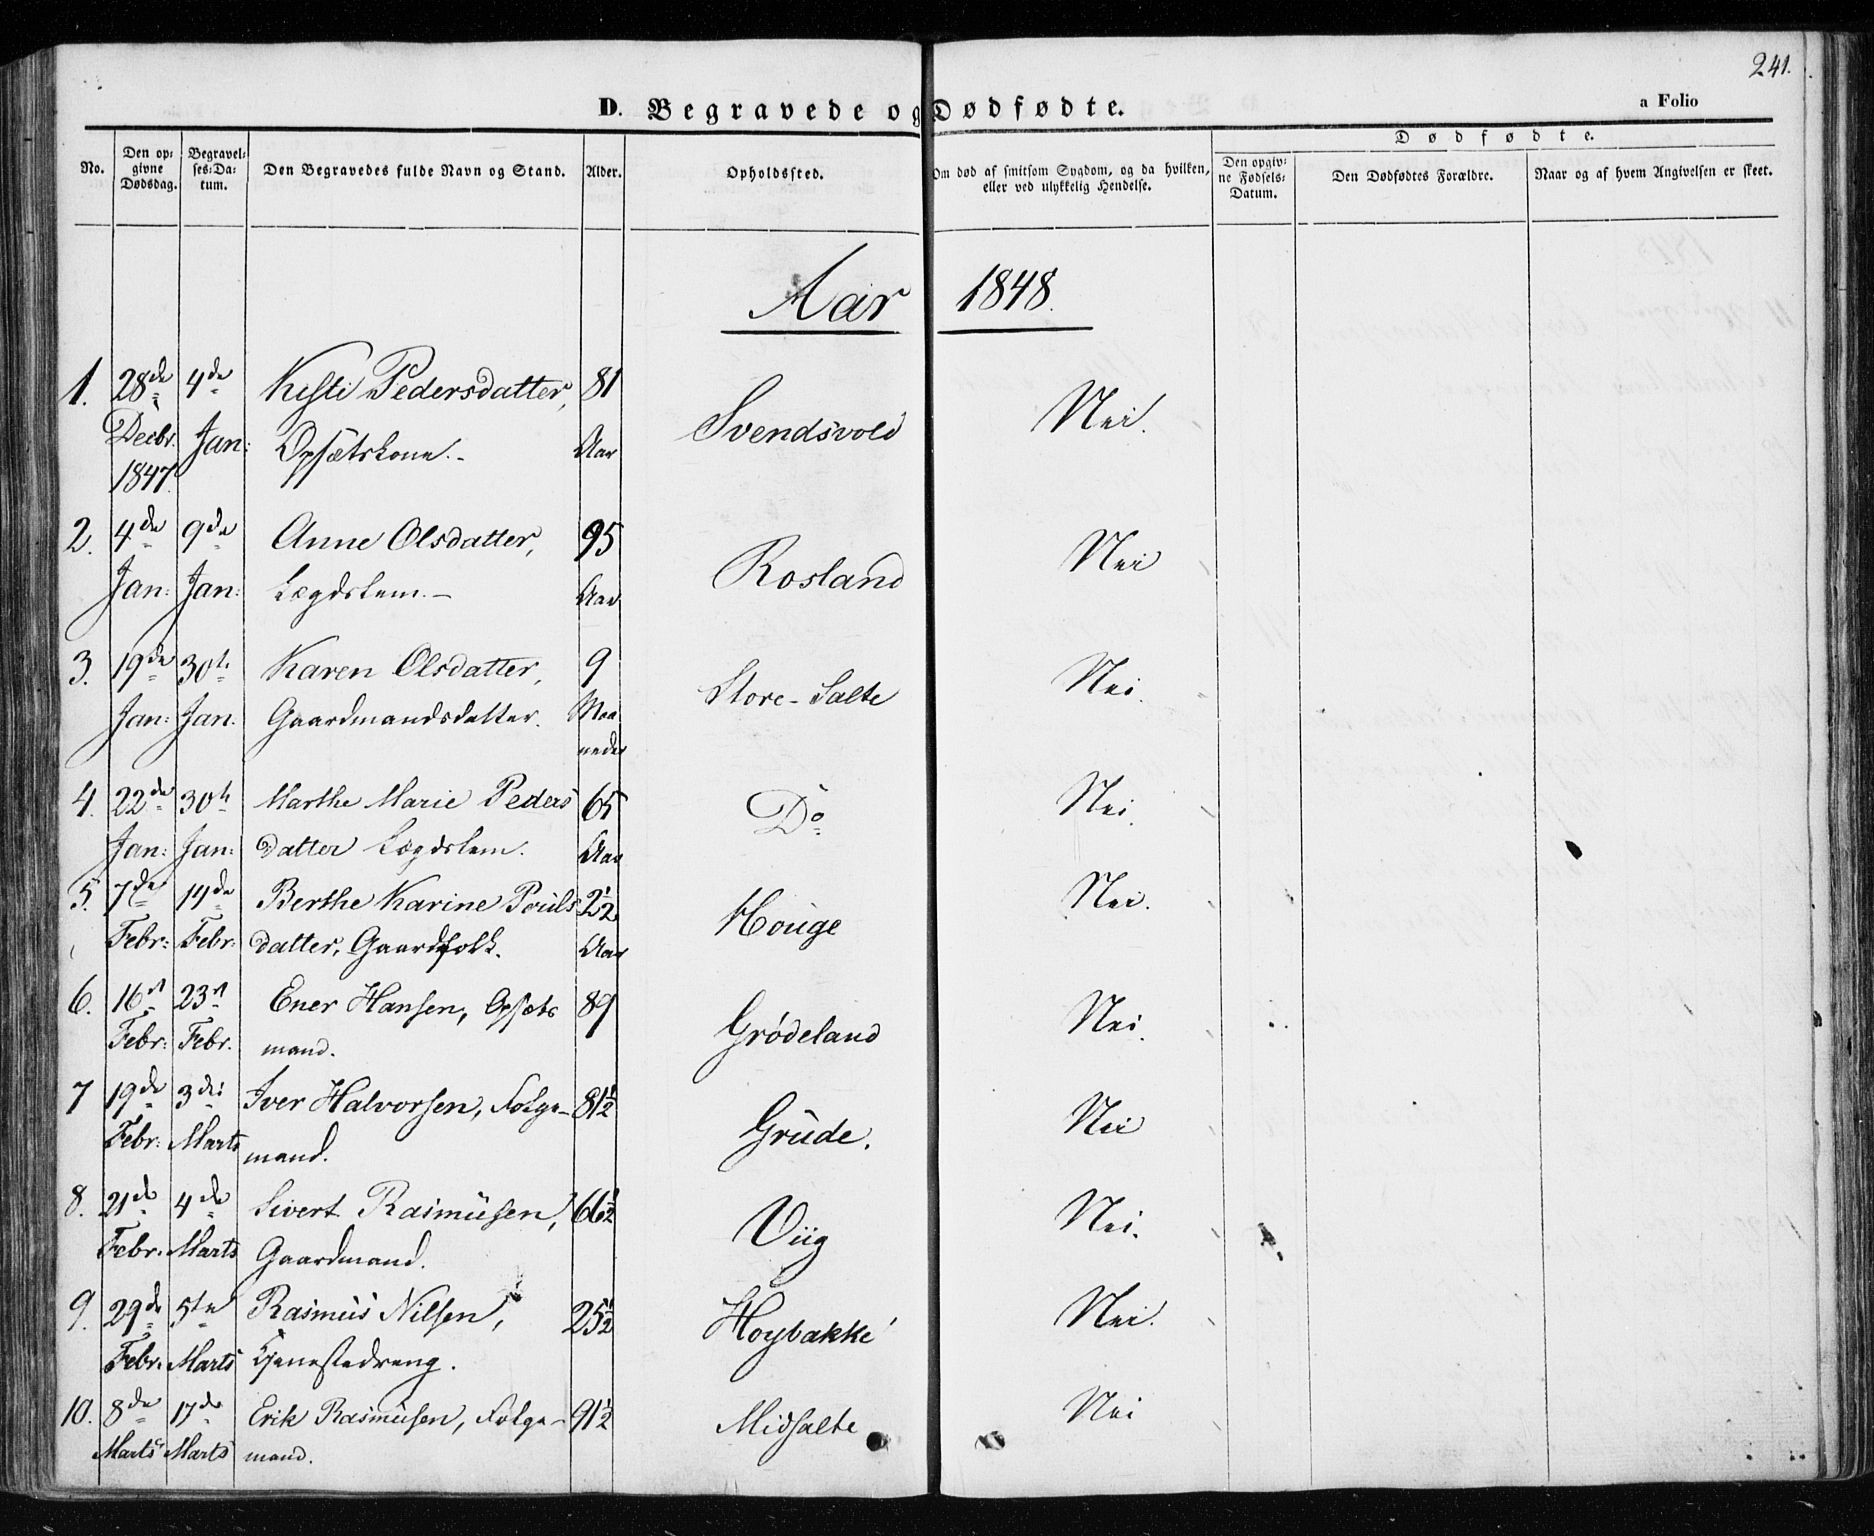 241.
D. Begravede og Dødfødte.
a Folio
No.
Den opgivne Dødsdag.
Begravelses-Datum.
Den Begravedes fulde Navn og Stand.
Alder.
Opholdssted.
Om død af smitsom Sygdom, og da hvilken, eller ved ulykkelig Hendelse.
Dødfødte.
Den opgivne Fødsels-Datum.
Den Dødfødtes Forældre.
Naar og af hvem Angivelsen er skeet.
Aar 1848.
1. 28de 4de Kisti Pedersdatter, 81 Svendsvold Nei.
Decbr. Jan: Opsætskone.- Aar
1847.
2. 4de 9de Anne Olsdatter, 95 Rosland Nei
Jan: Jan: Lægdslem.- Aar
3. 19de 30te Karen Olsdatter, 9 Store-Salte Nei.
Jan: Jan. Gaardmandsdatter. Maa
neder
4. 22de 30te Marthe Marie Peders 65 Do Nei.
Jan: Jan: datter Lægdslem. Aar
5. 7de 14de Berthe Karine Pouls 2½ Houge Nei.
Febr: Febr: datter, Gaardfolk. Aar
6. 16n 23n Ener Hansen, Opsæts 89 Grødeland Nei.
Febr: Febr. mand.
7 19de 3die Iver Halvorsen, Folge- 81½ Grude. Nei
Febr: Marts mand.
8. 21de 4de Sivert Rasmusen, 66½ Viig Nei.
Febr. Marts Gaardmand.
9. 29de 5te Rasmus Nilsen, 25½ Hoybakke Nei.
Febr. Marts Tjenestedreng.
10. 8de 17de Erik Rasmusen, Folge- 91½ Midsalte Nei
Marts Marts mand.